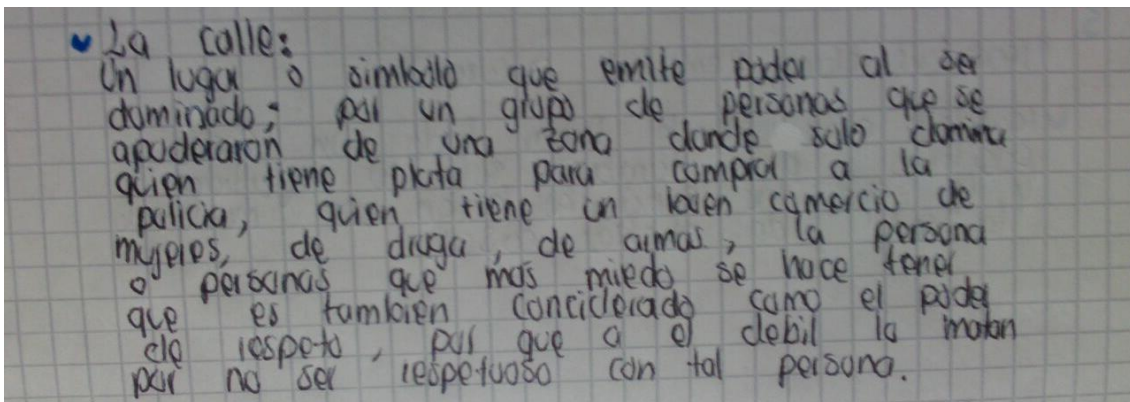 La calle:
Un lugar o simbolo que emite poder al ser
dominado; por un grupo de personas que se
apoderaron de una zona donde solo domina
quien tiene plata para comprar a la
policia, quien tiene un buen comercio de
mujeres, de droga, de armas, la persona
o personas que mas miedo se hace tener
que es tambien conciderado como el poder
de respeto, por que a el debil lo matan
por no ser respetuoso con tal persona.